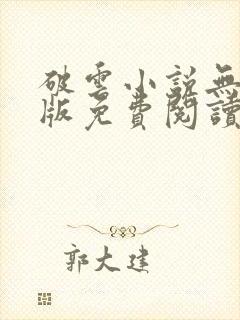 破雲小説無
版免費閱讀
郭大建